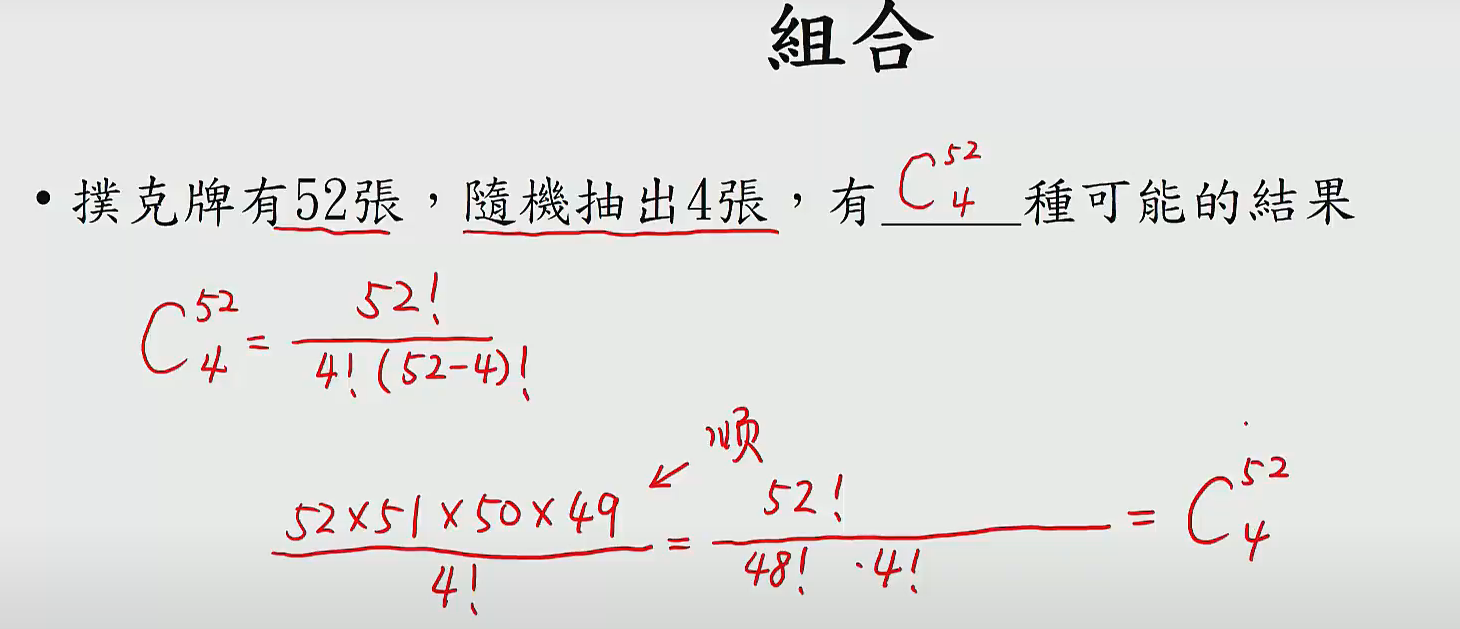 組合
• 撲克牌有52張，隨機抽出4張，有 C⁵²₄ 種可能的結果
C⁵²₄ = 52! / 4! (52-4)!
顺
52×51×50×49 / 4! = 52! / 48! · 4! = C⁵²₄